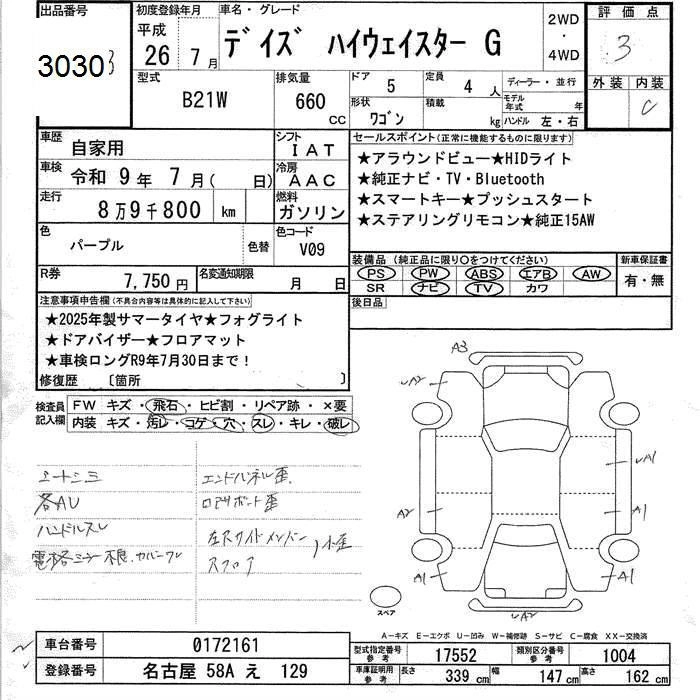 出品番号 初度登録年月 車名・グレード 2WD・4WD 評価点
30303 平成26年7月 デイズ ハイウェイスター G 3
型式 排気量 ドア 5 定員 4人 ディーラー・並行 外装 内装
B21W 660 CC 形状 ワゴン 積載 kg モデル年式 年 ハンドル 左・右 C
車歴 自家用 シフト IAT セールスポイント(正常に機能するものに限ります)
車検 令和 9年 7月( 日) 冷房 AAC ★アラウンドビュー★HIDライト
★純正ナビ・TV・Bluetooth
走行 8万9千800 km 燃料 ガソリン ★スマートキー★プッシュスタート
★ステアリングリモコン★純正15AW
色 パープル 色替 色コード V09
装備品(純正品に限り○をつけてください) 新車保証書
PS PW ABS エアB AW 有・無
SR ナビ TV カワ
R券 7,750円 名変通知期限 月 日
後日品
注意事項申告欄(不具合内容等は具体的に記入して下さい)
★2025年製サマータイヤ★フォグライト
★ドアバイザー★フロアマット
★車検ロングR9年7月30日まで!
修復歴 〔箇所 〕
検査員記入欄 FW キズ・飛石・ヒビ割・リペア跡・×要
内装 キズ・汚レ・コゲ・穴・スレ・キレ・破レ
シートシミ エンドパネル歪
各AU ロアサポート歪
ハンドルスレ 左リヤサイドメンバー
スフロア 小歪
A3
A2
A1
A2
A1
A1
A1
A2
スペア
A-キズ E-エクボ U-凹み W-補修跡 S-サビ C-腐食 XX-交換済
車台番号 0172161 型式指定番号 参考 17552 類別区分番号 参考 1004
登録番号 名古屋 58A え 129 車庫証明用 参考 長さ 339 cm 幅 147 cm 高さ 162 cm